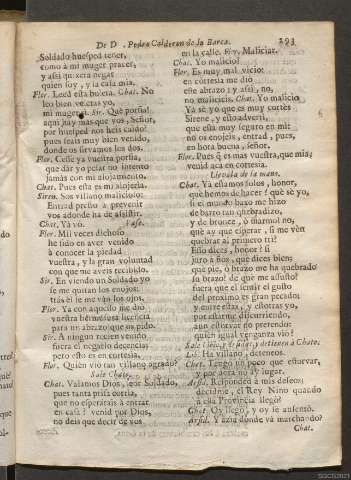 De D. Pedro Calderon de la Barca. 293
Soldado huesped tener,
como à mi mager pracer,
y assi quixera negar
quien soy, y la casa mia.
Flor. Leed esta buera. Chat. No
leo bien veletas yo,
mi mager. Sir. Què porsia!
aqui hay mas que vos, Señor,
por huesped nos heis caido!
pues seais muy bien venido,
donde os sirvamos los dos.
Flor. Cesse ya vuestra porfia,
que dar yo pesar no intento
jamàs con mi alojamiento.
Chat. Pues esta es mi alojeria.
Siren. Sos villano malicioso:
Entrad presto à prevenir
vos adonde ha de assistir.
Chat. Yà vò. Vase.
Flor. Mil veces dichoso
he sido en aver venido
à conocer la piedad,
vuestra, y la gran voluntad
con que me aveis recibido.
Sir. En viendo un Soldado yo
se me quitan los enojos:
tràs èl se me vàn los ojos.
Flor. Ya con aquesso me diò
vuestra hermosura licencia
para un abrazo que os pido.
Sir. A ningun recien venido
fuera el negarlo decencia;
pero esto es en cortesia.
Flor. Quièn viò tan villano agrado?
Sale Chato.
Chat. Valamos Dios, seor Soldado,
pues tanta prisa corria,
que no esperarais à entrar
en casa? venid por Dios,
no deis que decir de vos
en la calle. Flor. Maliciar.
Chat. Yo malicio?
Flor. Es muy mal vicio:
en cortesia me diò
este abrazo; y assi, no,
no maliciéis. Chat. Yo malicio
Yà sè yo que es muy cortès
Sirene, y esto adverti,
que està muy seguro en mi:
no os enojeis, entrad, pues,
en hora buena, señor.
Flor. Pues què es mas vuestra, que mia;
venid acà en cortesia.
Llevala de la mano.
Chat. Yà estamos solos, honor,
què hemos de hacer? què sè yo,
si el mundo baxo me hizo
de barro tan quebradizo,
y de bronce, ò marmol no,
què ay que esperar, si me vèn
quebrar al primero tri?
Esso dices, honor? sì
juro à ños, que dices bien;
què pie, ò brazo me ha quebrado
su brazo! de què me assusto?
fuera que el sentir el gusto
del proximo es gran pecado;
y entre estas, y estotras yo,
por estarme discurriendo,
aun estorvar no pretendo:
quièn igual venganza viò!
Lis. Ha villano, deteneos.
Chat. Tengo un poco que estorvar,
y por aora no ay lugar.
Arsid. Responded à mis deseos;
decidme, el Rey Nino quando
à esta Provincia llegò?
Chat. Oy llegò, y oy se ausentò.
Arsid. Y àzia dònde và marchando?
Chat.